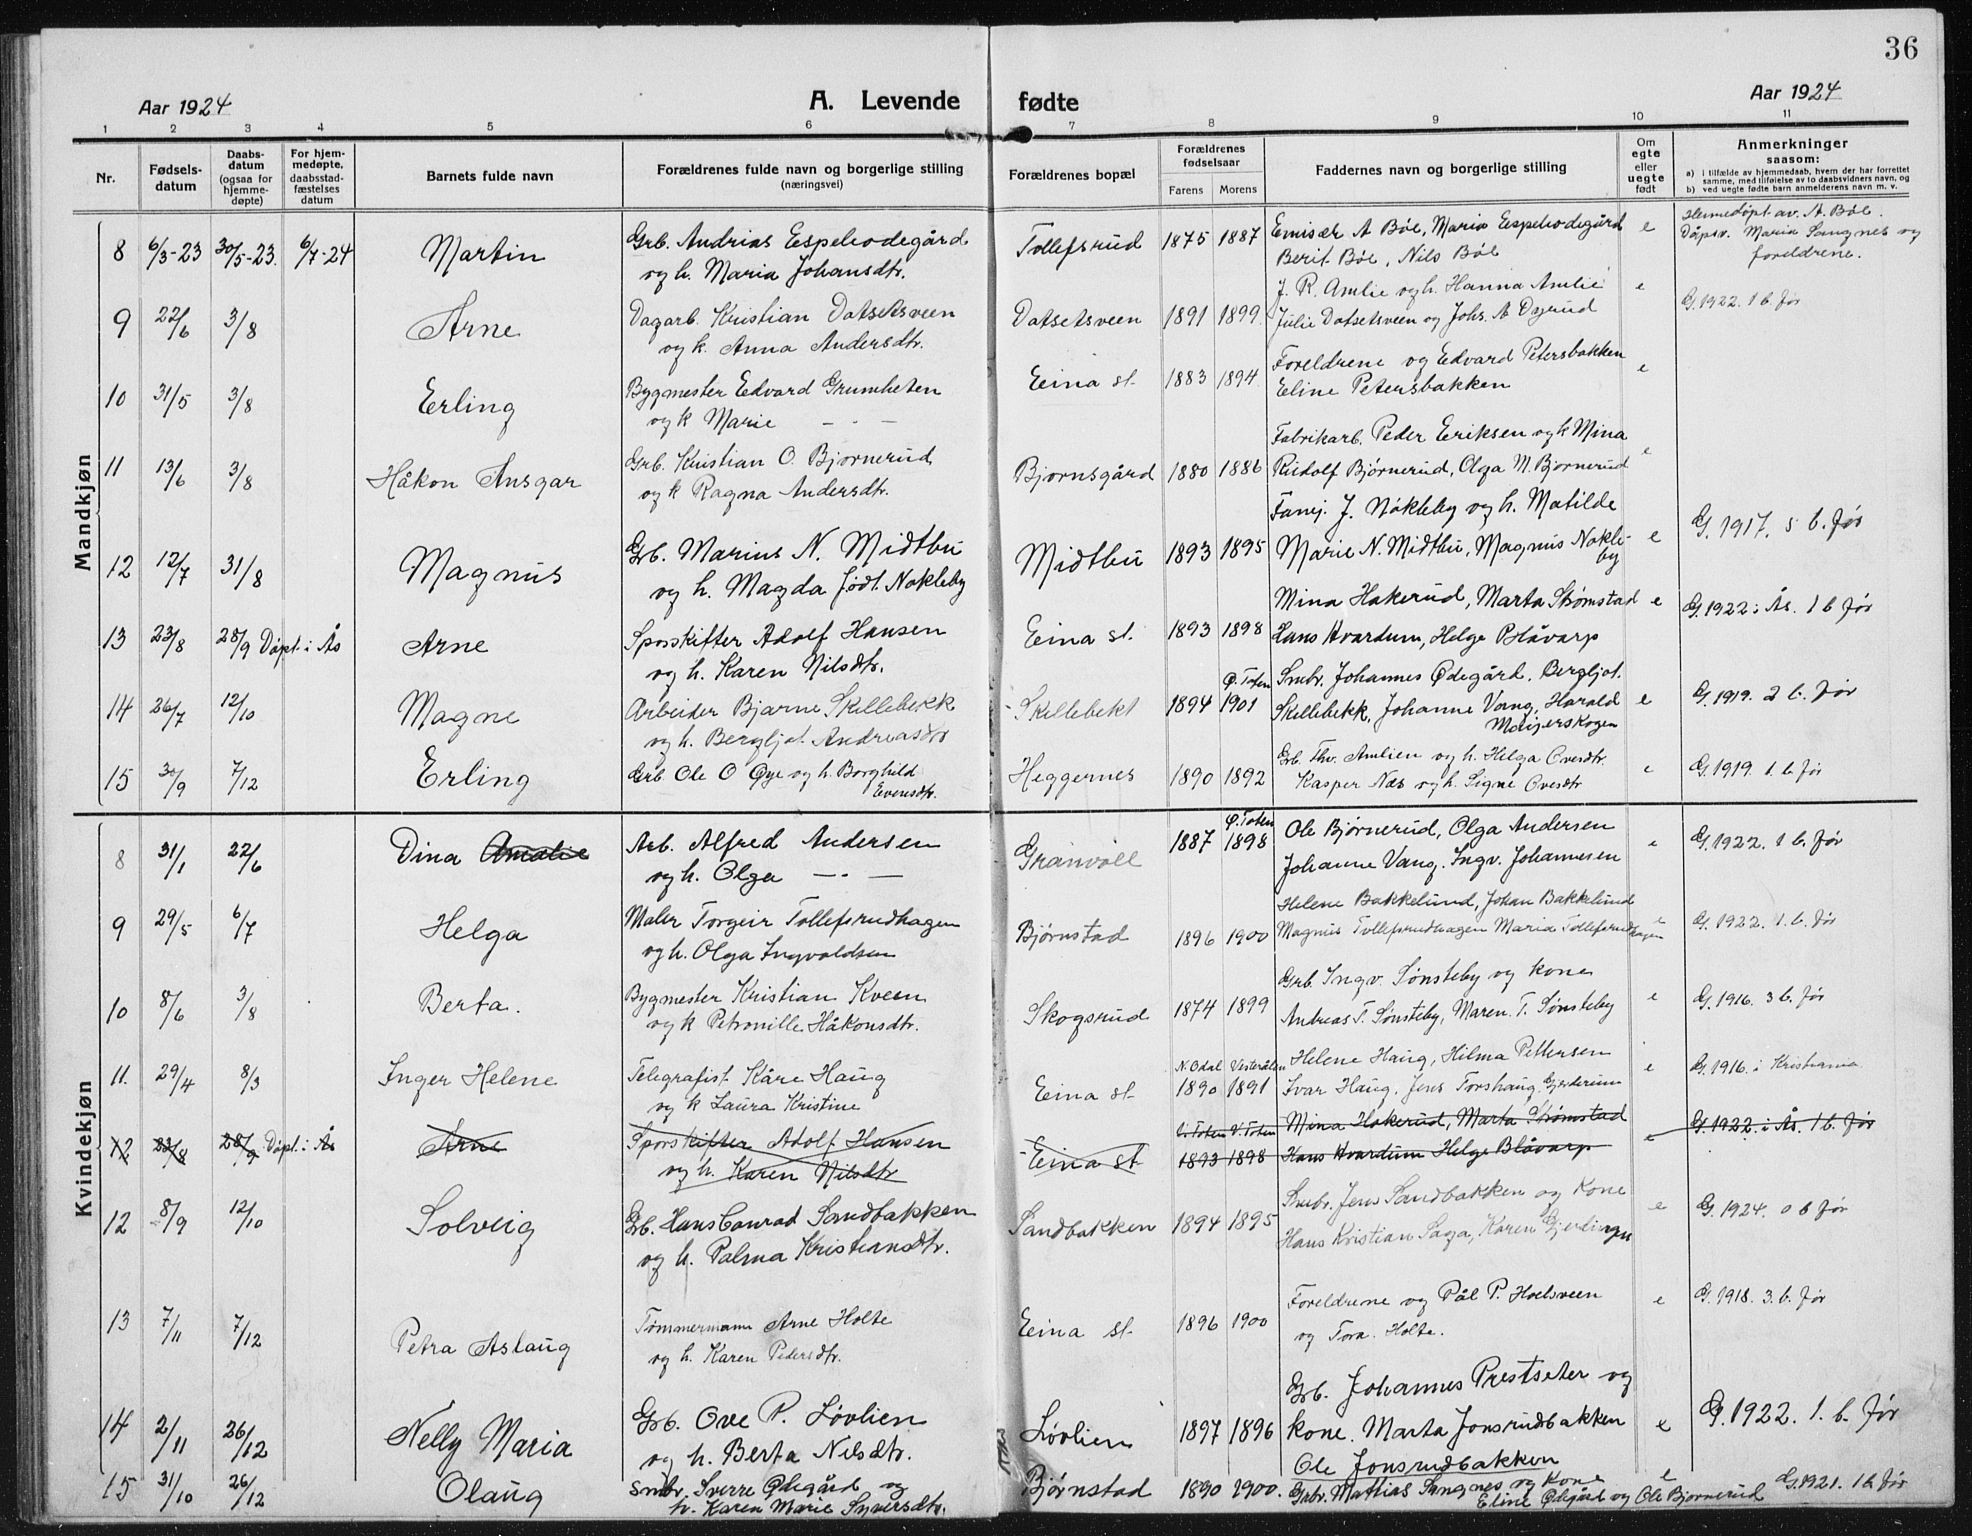 36
Aar 1924
A. Levende fødte
Aar 1924
1 2 3 4 5 6 7 8 9 10 11
Nr.
Fødsels-datum
Daabs-datum (ogsaa for hjemme-døpte)
For hjem-medøpte, daabsstad-fæstelses datum
Barnets fulde navn
Forældrenes fulde navn og borgerlige stilling
(næringsvei)
Forældrenes bopæl
Forældrenes fødselsaar
Farens Morens
Faddernes navn og borgerlige stilling
Om egte eller uegte født
Anmerkninger
saasom:
a) i tilfælde av hjemmedaab, hvem der har forrettet samme, med tilføielse av to daabsvidners navn, og
b) ved uegte fødte barn anmelderens navn m. v.
Mandkjøn
8 6/3-23 30/5-23. 6/7-24 Martin Grb. Andrias Espelvodegård Tollefsrud 1875 1887 Emisær A Bøe, Maria Espelvodegård e Hemedøpt av. A. Bøe.
og h. Maria Johansdtr. Berit Bøe, Nils Bøe Dåpsv. Maria Sangnes og
foreldrene.
9 22/6 3/8 Arne Dagarb. Kristian Datsetsveen Datsetsveen 1891 1899 J. R. Amlie og h. Hanna Amlie e G. 1922. 1 b. før
og k. Anna Andersdtr. Julie Datsetsveen og Johs. A Dyrud
10 31/5 3/8 Erling Bygmester Edvard Grumheten Eina st. 1883 1894 Foreldrene og Edvard Petersbakken e
og k Marie — - — Eline Petersbakken
11 13/6 3/8 Håkon Ansgar Grb. Kristian O. Bjørnerud Bjornsgård 1880 1886 Fabrikarb. Peder Eriksen og k Mina e
og k Ragna Andersdtr. Rudolf Bjørnerud, Olga M. Bjornerud
12 12/7 31/8 Magnus Grb. Marius N. Midtbu Midtbu 1893 1895 J. Nøkleby og h. Matilde e G. 1917. 5 b. før
og h. Magda født Nøkleby Marie N. Midtbu, Magnus Nøkle-
by
13 23/8 28/9 Døpt i Ås Arne Sporskifter Adolf Hansen Eina st. 1893 1898 Mina Hakerud, Marta Strømstad e G. 1922 i Ås. 1 b før
og h. Karen Nilsdtr. Hans Hvardum, Helge Blåvarp
14 26/7 12/10 Magne Arbeider Bjarne Skillebekk Skillebekk 1894 Ø. Toten 1901 Smbr. Johannes Ødegård. Bergljot. e G. 1919. 2 b. før
og h. Bergljot Andreasdtr Skillebekk, Johanne Vang, Harald
15 30/9 7/12 Erling Grb Ole O Øye og h. Borghild Heggernes 1890 1892 Grb. Thv. Amlien og h. Helga Ovesdtr. e G. 1919. 1. b. før
Evensdtr. Kasper Næs og h. Signe Ovesdtr
Kvindekjøn
8 31/1 22/6 Dina Amalie Arb. Alfred Andersen Granvoll 1887 Ø. Toten 1898 Ole Bjørnerud, Olga Andersen e G. 1922. 1 b. før
og h. Olga — - — Johanne Vang. Ingv. Johannesen
9 29/5 6/7 Helga Maler Torgeir Tollefsrudhagen Bjørnstad 1896 1900 Helene Bakkelund, Johan Bakkelund e G. 1922. 1. b. før
og h. Olga Ingvaldsen Magnus Tollefsrudhagen Maria Tollefsrudhagen
10 8/6 3/8 Berta. Bygmester Kristian Kveen Skogsrud 1874 1899 Grb. Ingv. Sønsteby og kone e G. 1916. 3 b. før
og k Petronille Håkonsdtr. Andreas T. Sønsteby, Maren T. Sønsteby
11. 29/4 8/3 Inger Helene Telegrafist. Kåre Haug Eina st. N. Odal 1890 Vesterålen 1891 Helene Haug, Hilma Pettersen e G. 1916. i Kristiania
og k Laura Kristine Ivar Haug. Jens Torshaug, Gjerderum
12 23/8 28/9 Døpt i Ås Arne Sporskifter Adolf Hansen Eina st. V. Toten 1893 V. Toten 1898 Mina Hakerud, Marta Strømstad e G. 1922. i Ås. 1 b. før
og h. Karen Nilsdtr Hans Hvardum Helge Blåvarp
12 8/9 12/10 Solveig Grb. Hans Conrad Sandbakken Sandbakken 1894 1895 Smbr. Jens Sandbakken og Kone e G. 1924. 0 b før
og h. Palma Kristiansdtr. Hans Kristian Saga, Karen
13 7/11 7/12 Petra Aslaug Tømmermann Arne Holte Eina st. 1896 1900 Foreldrene og Pål P. Hoelsveen e G. 1918. 3. b. før
og h. Karen Pedersdtr. og Tora. Holte.
14 2/11 26/12 Nelly Maria Grb. Ove P. Løvlien Løvlien 1897 1896 Grb. Johannes Prestseter og e G. 1922. 1. b. før
og h. Berta Nilsdtr. kone. Marta Jonsrudbakken
Ole Jonsrudbakken
15 31/10 26/12 Olaug Smbr. Sverre Ødegård og Bjørnstad 1890 1900. Grbr. Mattias Sangnes og Kone e G. 1921. 1 b før
h. Karen Marie Syversdtr. Eline Ødegård og Ole Bjørnerud